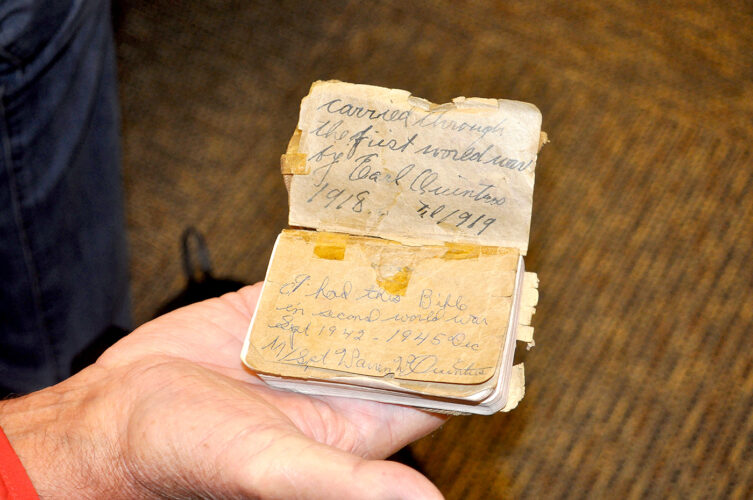 carried through
the first world war
by Earl Quintus
1918.. til 1919
I had this Bible
in second world war
Sept 1942 - 1945 Dec
M/Sgt Warren W Quintus